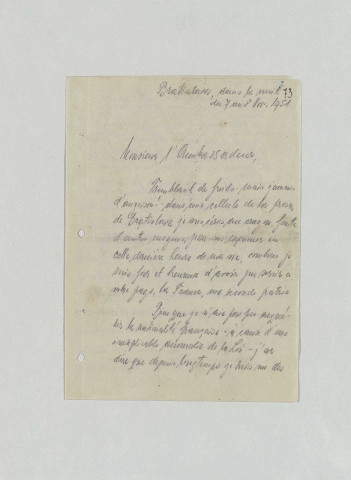 Bratislava, dans la nuit 73
du 7 au 8 Nov. 1951
Monsieur l'Ambassadeur,
Tremblant de froid, mais
dans une cellule de la prison
de Bratislava je
d'autres moyens, pour vous exprimer en
cette dernière heure de ma vie, combien je
suis fier et heureux d'avoir pu servir
votre pays, la France, ma seconde patrie
Bien que je n'aie pas pu
la nationalité française - à cause d'une
inexplicable de la Loi - j'ose
dire que depuis longtemps je suis un des